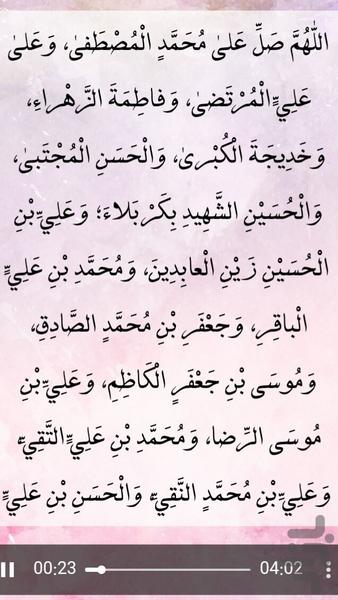 اللّٰهُمَّ صَلِّ عَلىٰ مُحَمَّدٍ الْمُصْطَفىٰ، وَعَلىٰ
عَلِيٍّ الْمُرْتَضىٰ، وَفاطِمَةَ الزَّهْراءِ،
وَخَدِيجَةَ الْكُبْرىٰ، وَالْحَسَنِ الْمُجْتَبىٰ،
وَالْحُسَيْنِ الشَّهِيدِ بِكَرْبَلاءَ؛ وَعَلِيِّ بْنِ
الْحُسَيْنِ زَيْنِ الْعابِدِينَ، وَمُحَمَّدِ بْنِ عَلِيٍّ
الْباقِرِ، وَجَعْفَرِ بْنِ مُحَمَّدٍ الصَّادِقِ،
وَمُوسَى بْنِ جَعْفَرٍ الْكَاظِمِ، وَعَلِيِّ بْنِ
مُوسَى الرِّضا، وَمُحَمَّدِ بْنِ عَلِيٍّ التَّقِيِّ،
وَعَلِيِّ بْنِ مُحَمَّدٍ النَّقِيِّ، وَالْحَسَنِ بْنِ عَلِيٍّ
00:23 04:02